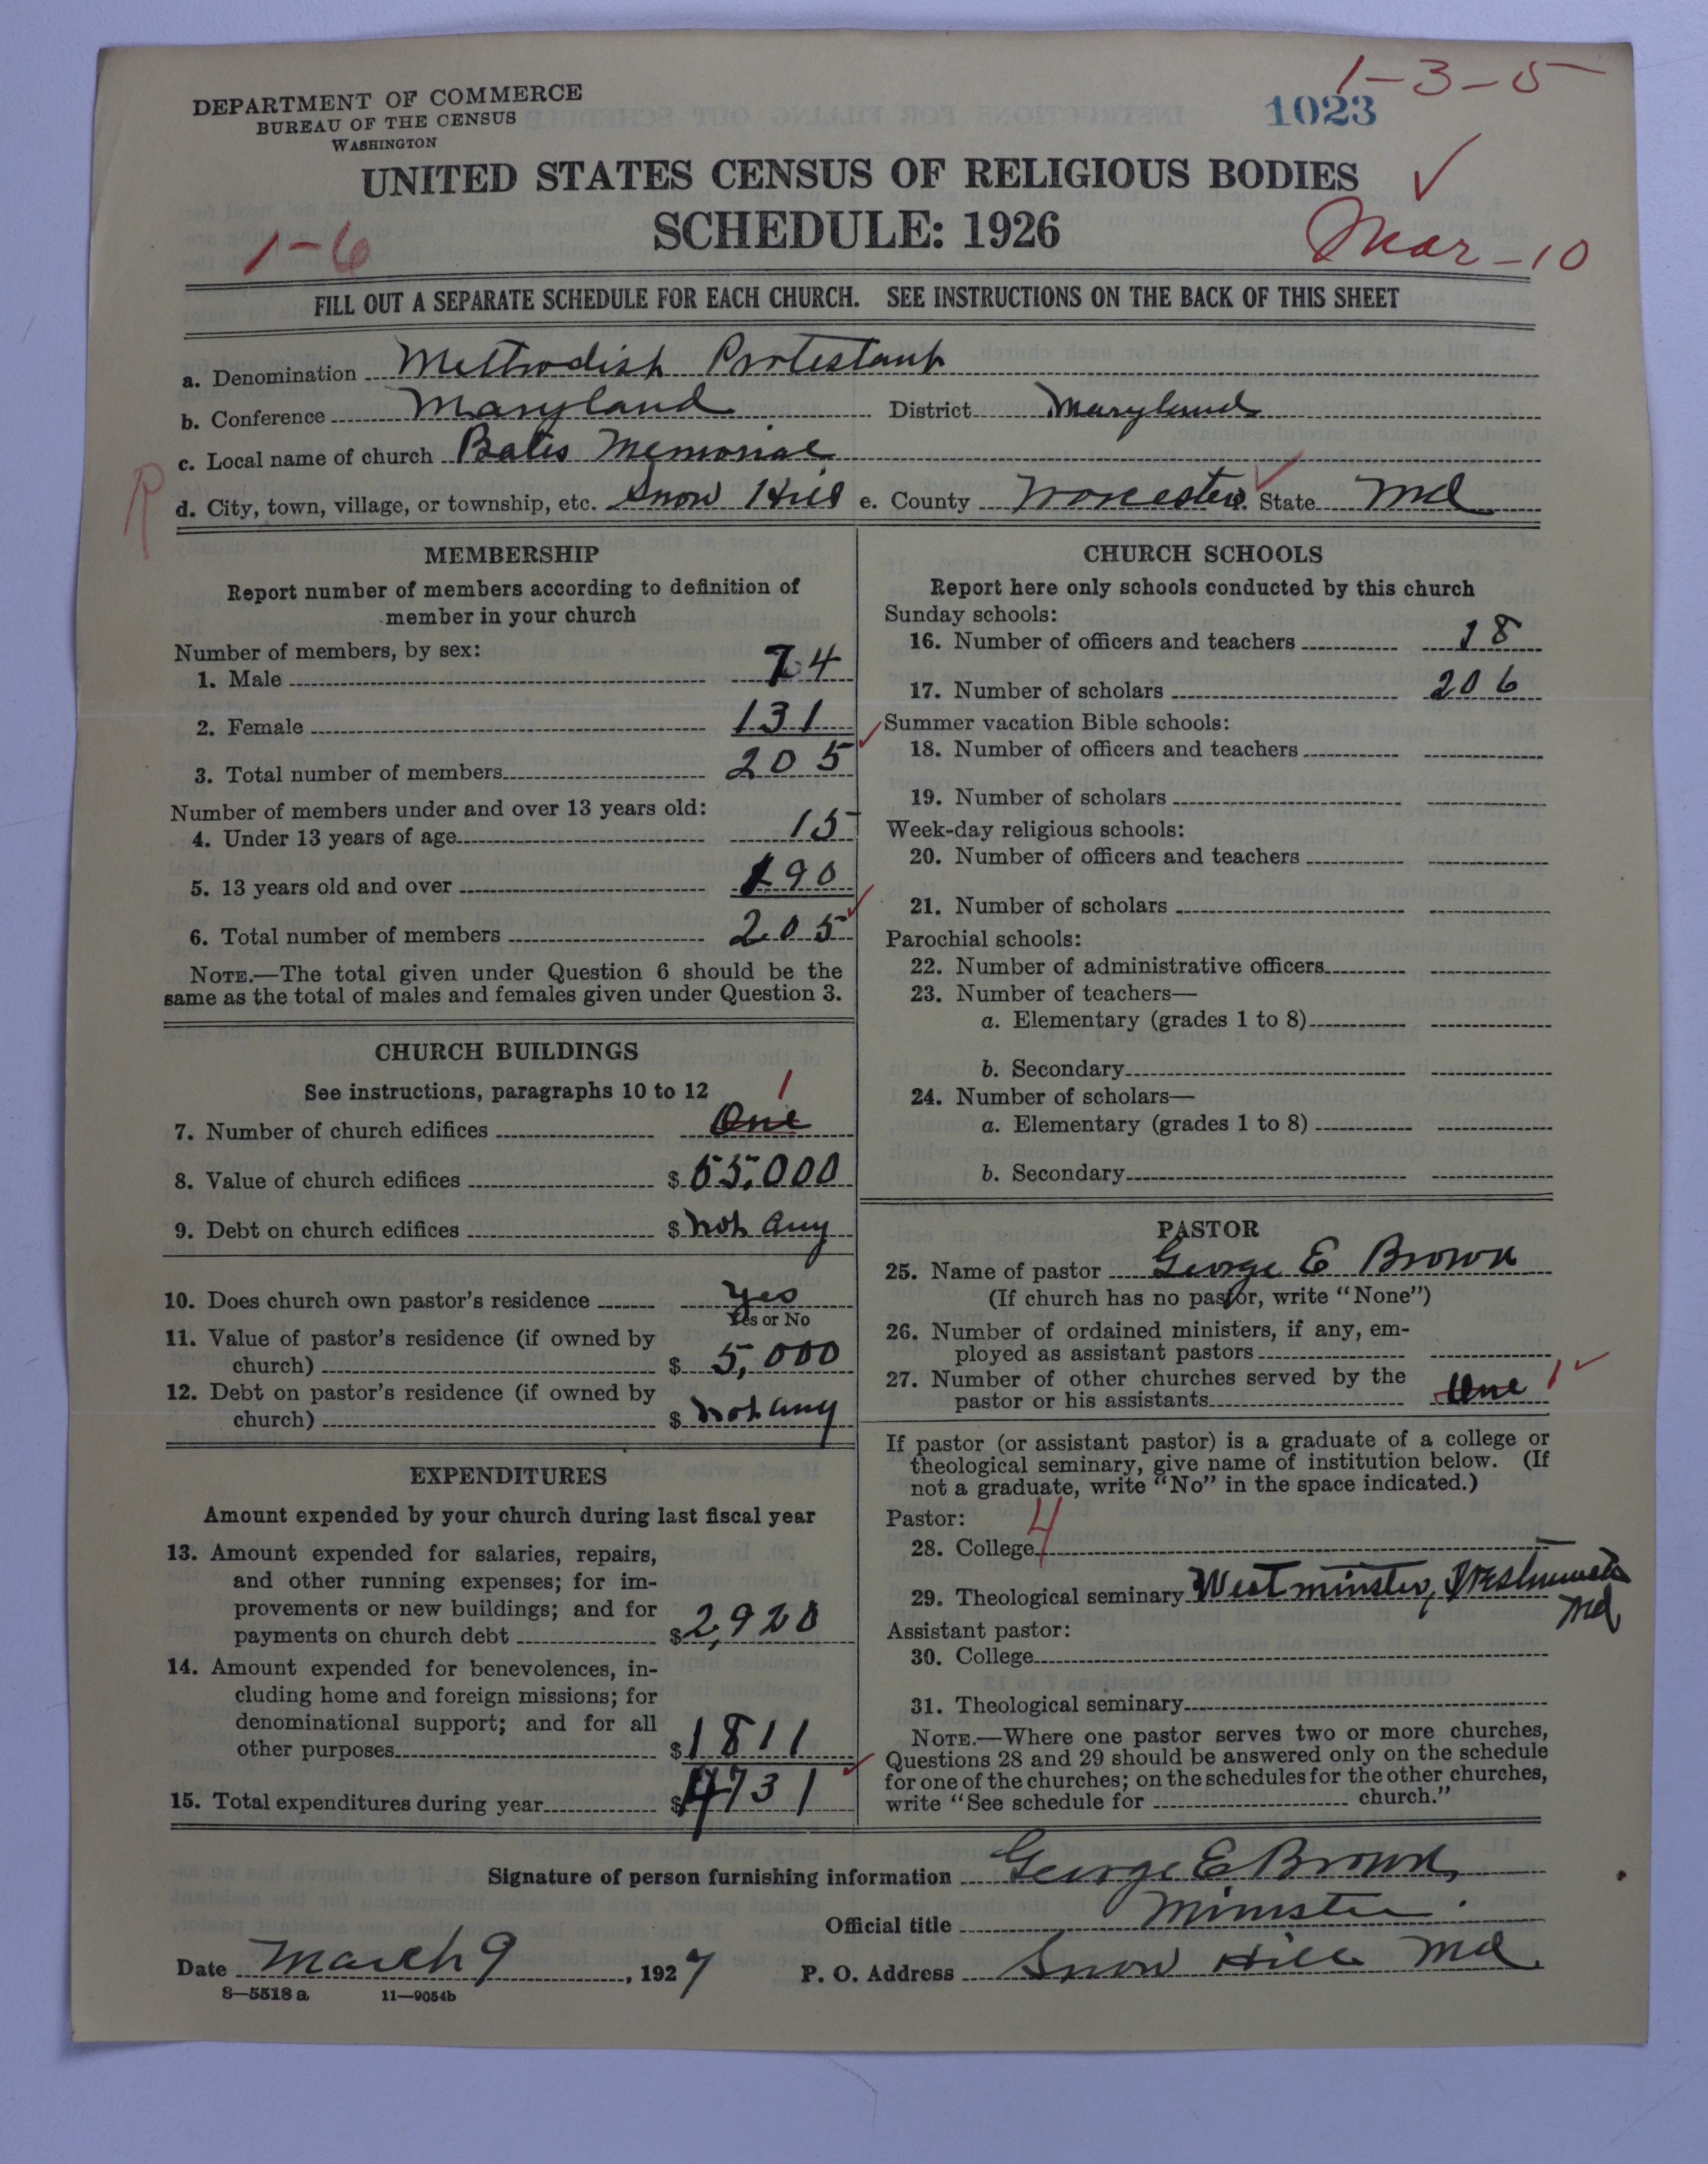 1-3-5
DEPARTMENT OF COMMERCE
BUREAU OF THE CENSUS
WASHINGTON
1023
UNITED STATES CENSUS OF RELIGIOUS BODIES
SCHEDULE: 1926
1-6
Mar-10
FILL OUT A SEPARATE SCHEDULE FOR EACH CHURCH. SEE INSTRUCTIONS ON THE BACK OF THIS SHEET
a. Denomination Methodist Protestant
b. Conference Maryland District Maryland
c. Local name of church Bates Memorial
R
d. City, town, village, or township, etc. Snow Hill e. County Worcester State Md
MEMBERSHIP
Report number of members according to definition of
member in your church
Number of members, by sex:
1. Male 74
2. Female 131
3. Total number of members 205
Number of members under and over 13 years old:
4. Under 13 years of age 15
5. 13 years old and over 190
6. Total number of members 205
NOTE.—The total given under Question 6 should be the
same as the total of males and females given under Question 3.
CHURCH BUILDINGS
See instructions, paragraphs 10 to 12
1
7. Number of church edifices One
8. Value of church edifices $ 55,000
9. Debt on church edifices $ not any
10. Does church own pastor's residence Yes
Yes or No
11. Value of pastor's residence (if owned by
church) $ 5,000
12. Debt on pastor's residence (if owned by
church) $ not any
EXPENDITURES
Amount expended by your church during last fiscal year
13. Amount expended for salaries, repairs,
and other running expenses; for im-
provements or new buildings; and for
payments on church debt $ 2,920
14. Amount expended for benevolences, in-
cluding home and foreign missions; for
denominational support; and for all
other purposes $ 1811
15. Total expenditures during year $ 4731
CHURCH SCHOOLS
Report here only schools conducted by this church
Sunday schools:
16. Number of officers and teachers 18
17. Number of scholars 206
Summer vacation Bible schools:
18. Number of officers and teachers
19. Number of scholars
Week-day religious schools:
20. Number of officers and teachers
21. Number of scholars
Parochial schools:
22. Number of administrative officers
23. Number of teachers—
a. Elementary (grades 1 to 8)
b. Secondary
24. Number of scholars—
a. Elementary (grades 1 to 8)
b. Secondary
PASTOR
25. Name of pastor George E Brown
(If church has no pastor, write "None")
26. Number of ordained ministers, if any, em-
ployed as assistant pastors
27. Number of other churches served by the
pastor or his assistants One 1
If pastor (or assistant pastor) is a graduate of a college or
theological seminary, give name of institution below. (If
not a graduate, write "No" in the space indicated.)
Pastor:
28. College 4
29. Theological seminary Westminster, Westminster
Md
Assistant pastor:
30. College
31. Theological seminary
NOTE.—Where one pastor serves two or more churches,
Questions 28 and 29 should be answered only on the schedule
for one of the churches; on the schedules for the other churches,
write "See schedule for church."
Signature of person furnishing information George E Brown,
Official title Minister.
Date March 9, 1927 P. O. Address Snow Hill Md.
8—5518 a 11—9054b